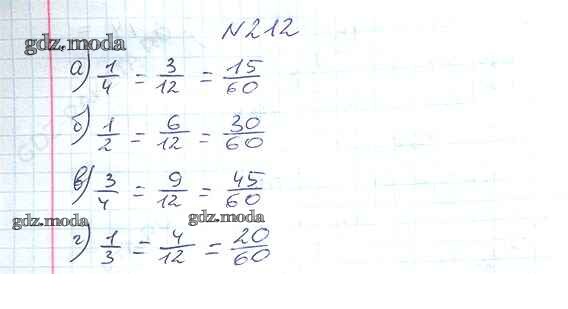 №212
gdz.moda
а) 1/4 = 3/12 = 15/60
б) 1/2 = 6/12 = 30/60
в) 3/4 = 9/12 = 45/60
gdz.moda gdz.moda
г) 1/3 = 4/12 = 20/60